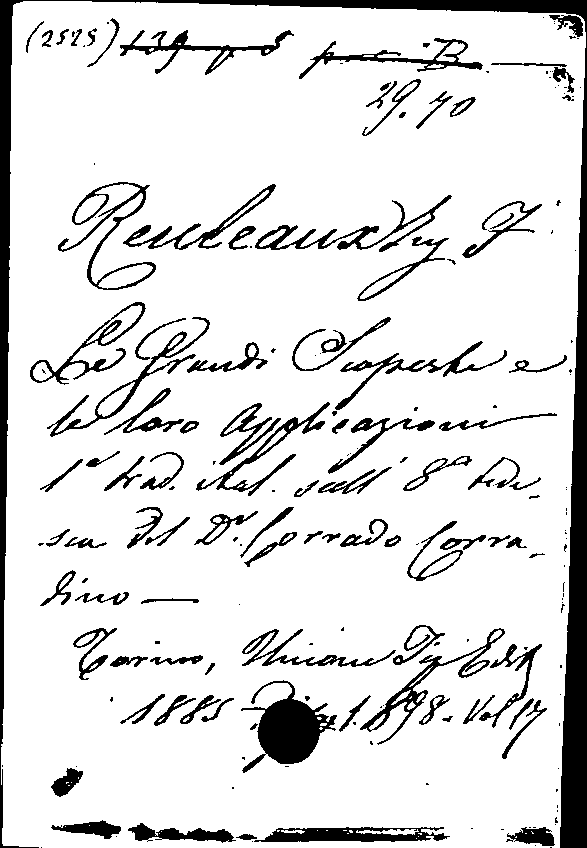 (2525) 139 p 5
29. 70
Reuleaux Ing F
Le Grandi Scoperte e
le loro Applicazioni
1ª trad. ital. sull' 8ª tede-
sca del Dr. Corrado Corra-
dino —
Torino, Unione Tip Edit
1885 1898. Vol 17